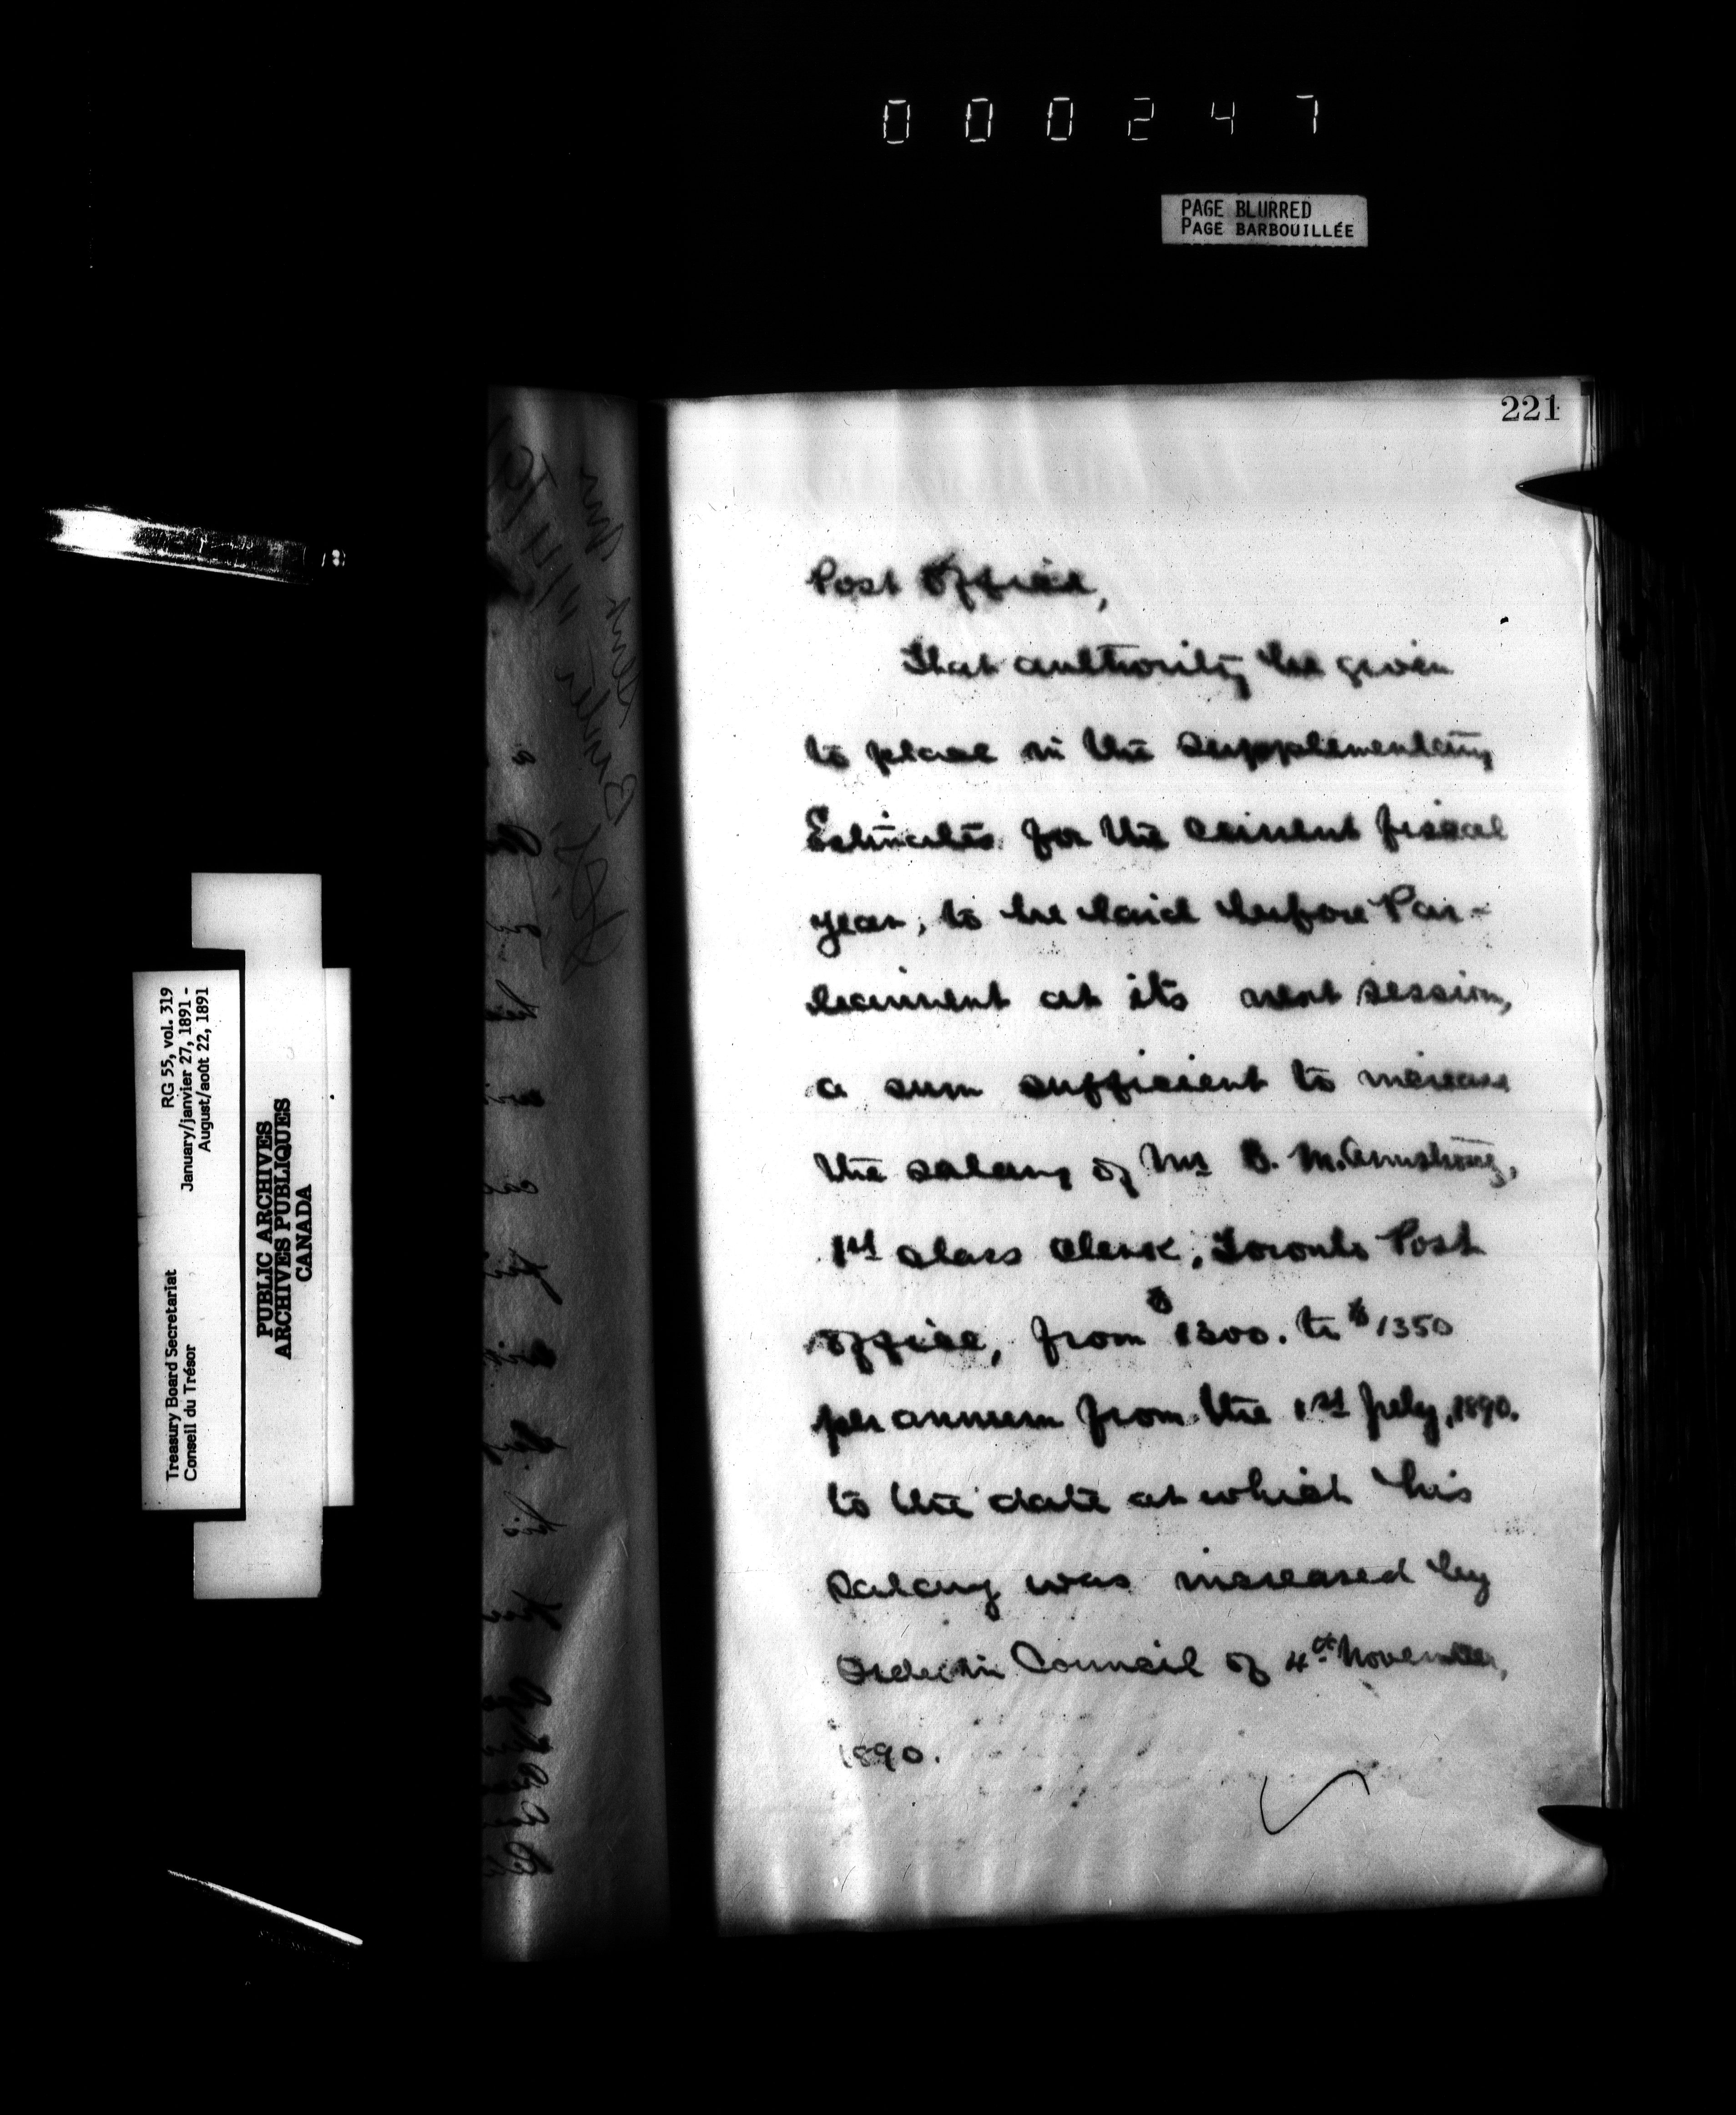 000247
PAGE BLURRED
PAGE BARBOUILLÉE
221
Post Office,
That authority be given
to place in the Supplementary
Estimates for the current fiscal
year, to be laid before Par-
liament at its next session,
a sum sufficient to increase
the salary of Mr B. M. Armstrong,
1st class Clerk, Toronto Post
Office, from $1300. to $1350
per annum from the 1st July, 1890.
to the date at which his
salary was increased by
Order in Council of 4th November,
1890.
Treasury Board Secretariat RG 55, vol. 319
Conseil du Trésor January/janvier 27, 1891 -
August/août 22, 1891
PUBLIC ARCHIVES
ARCHIVES PUBLIQUES
CANADA